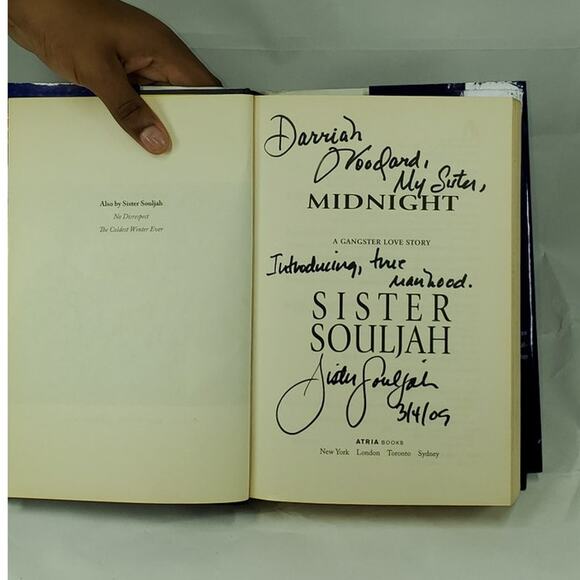 Also by Sister Souljah
No Disrespect
The Coldest Winter Ever
Darriah
Woodard,
My Sister,
MIDNIGHT
A GANGSTER LOVE STORY
Introducing, true
manhood.
SISTER
SOULJAH
Sister Souljah
3/4/09
ATRIA BOOKS
New York London Toronto Sydney